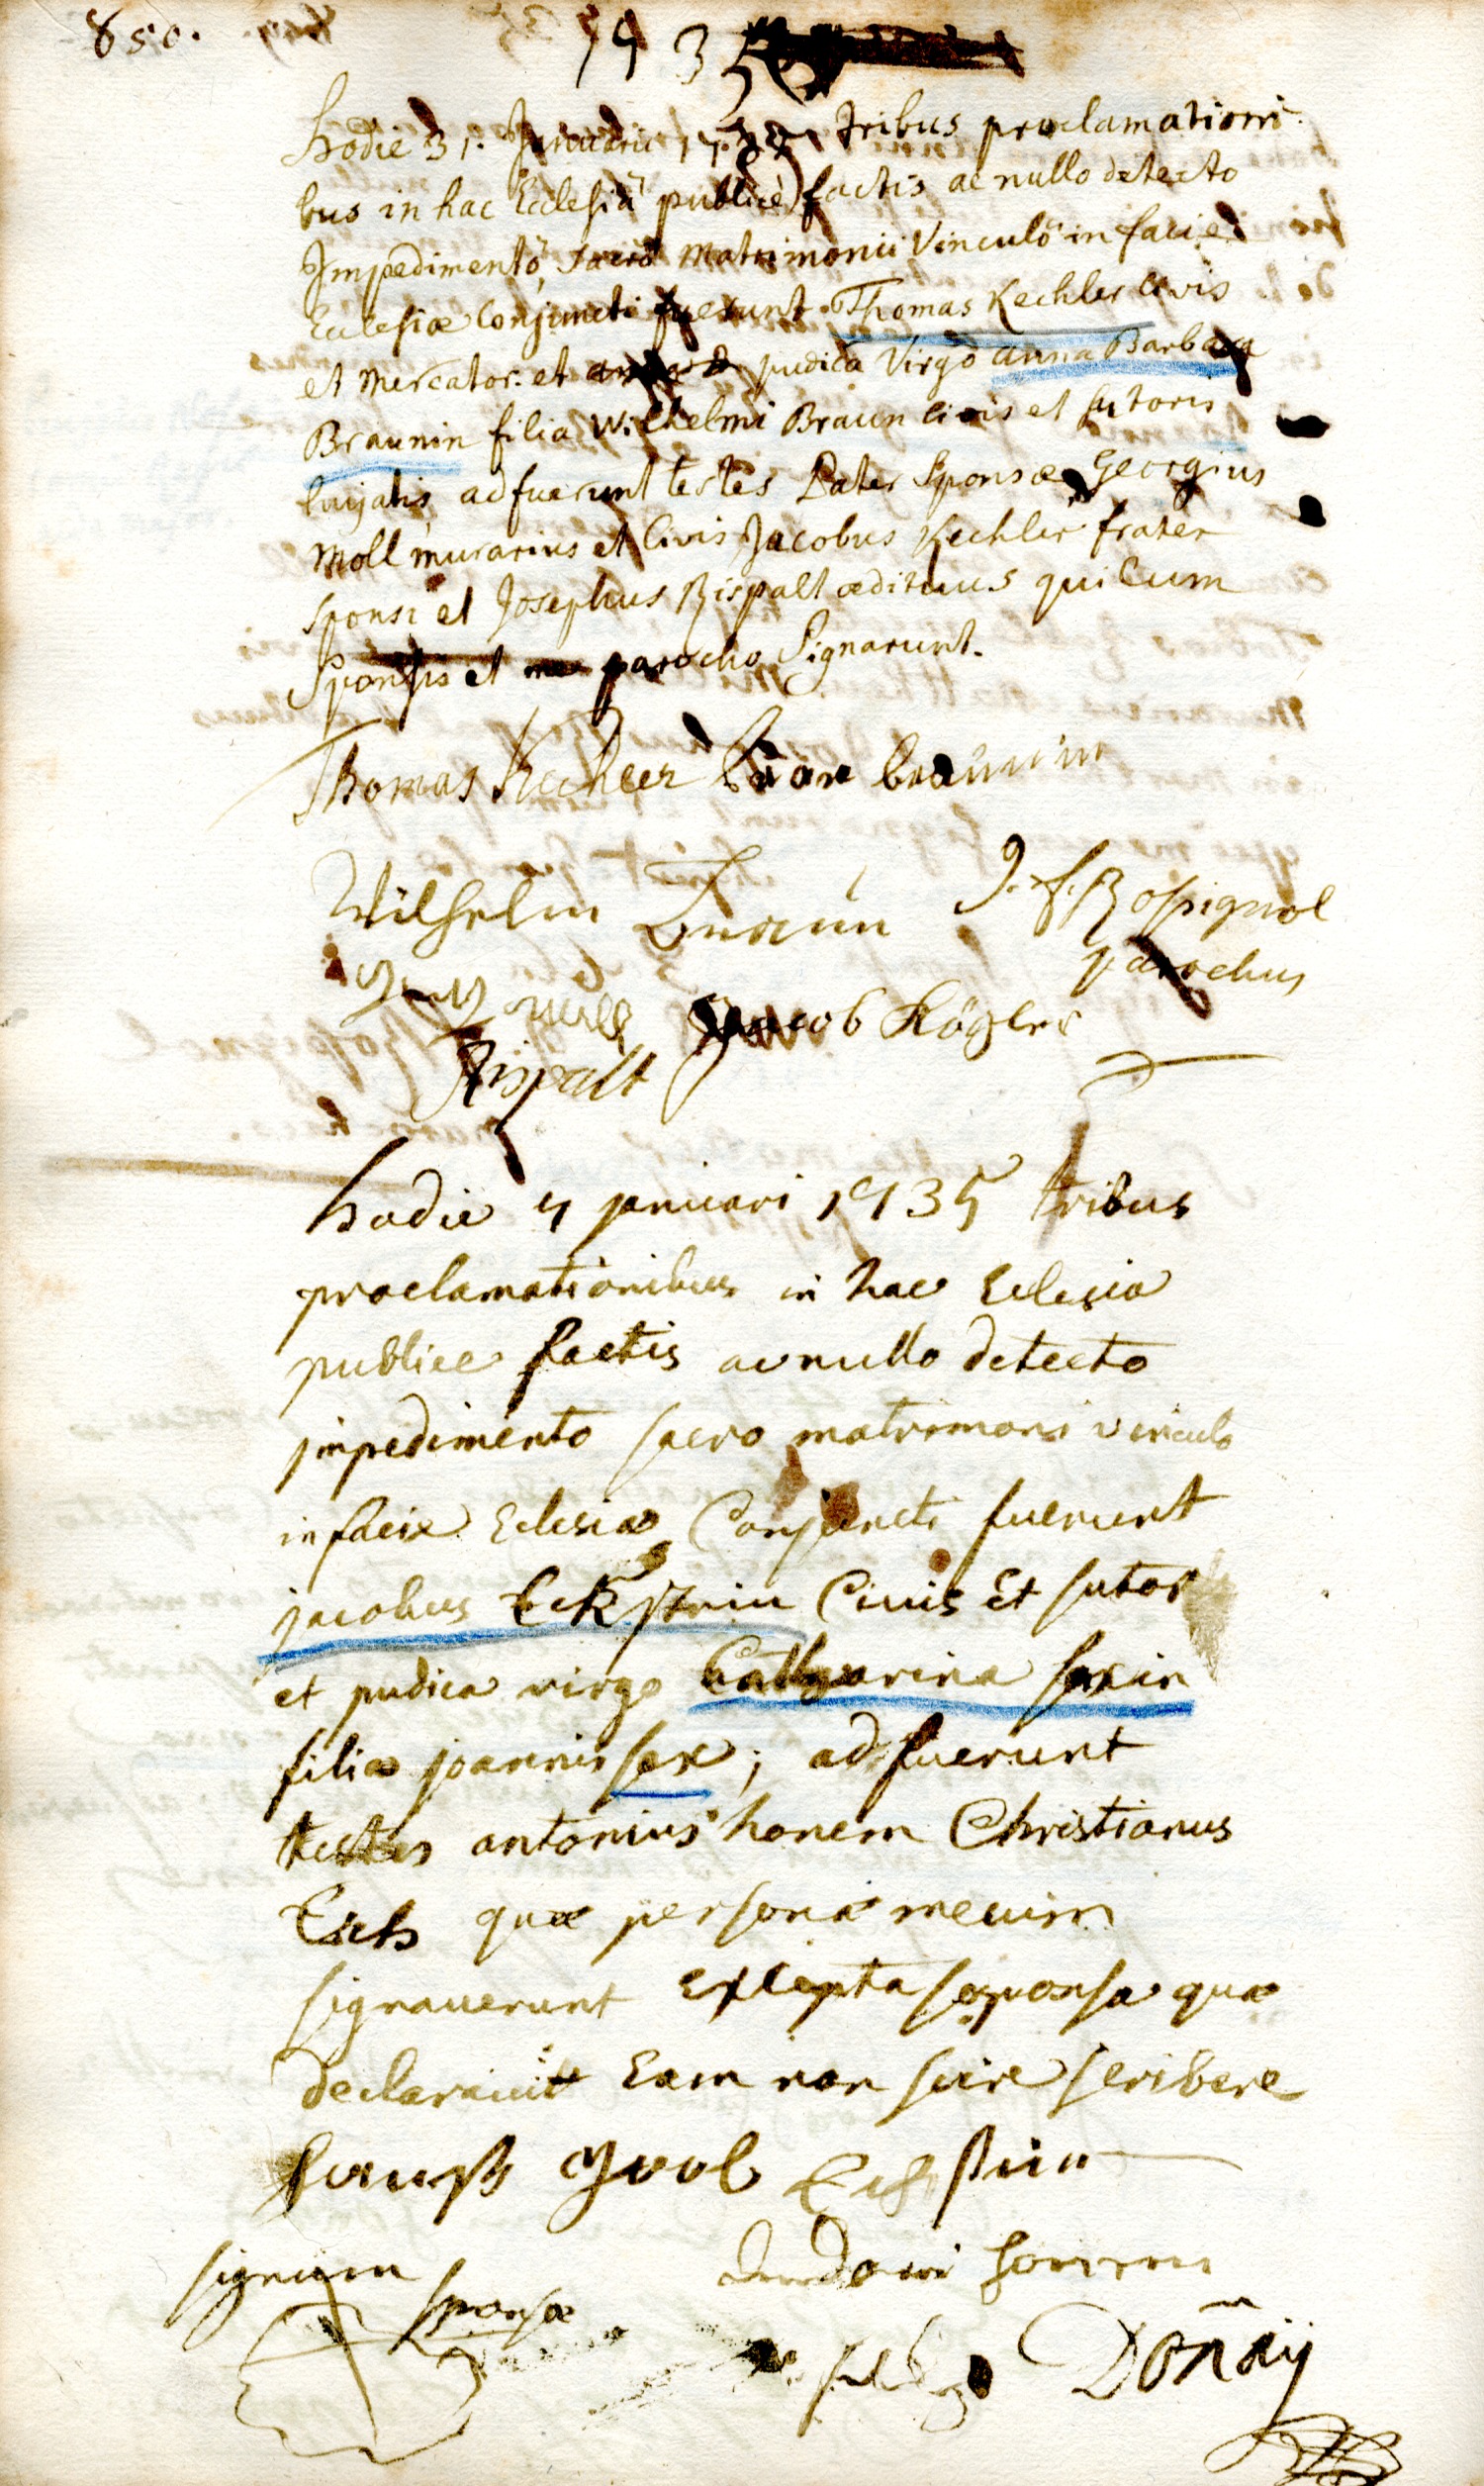 850.
1735
Hodie 31. Januarii 1735 tribus proclamationi
bus in hac Ecclesiâ publicè factis ac nullo detecto
Impedimentô, sacrô matrimonii Vinculô in facie
Ecclesiæ Conjuncti fuerunt Thomas Kechler civis
et Mercator. et pudica Virgo anna Barbara
Braunin filia Wilhelmi Braun civis et sutoris
hujatis, adfuerunt testes Pater Sponsæ, Georgius
Moll murarius et Civis Jacobus Kechler frater
sponsi et Josephus Rispalt ædituus qui Cum
Sponsis et parocho Signarunt.
Thomas Kechler braunin
Wilhelm Braun J. f. Rossignol
parochus
Jacob Kögler
Rispalt
hodie 4 januari 1735 tribus
proclamationibus in hac Eclesia
publice factis ac nullo detecto
impedimento sacro matrimoni vinculo
in facie Eclesiæ Conjuncti fuerunt
jacobus Eckstein Civis Et sutor
et pudica virgo Catharina sexin
filia joannis sex; adfuerunt
testes antonius honem Christianus
Esch quæ personæ mecum
signauerunt Excepta sponsa quæ
declarauit Eam non scire scribere
Eckstein
signum
sponsæ
Doñay